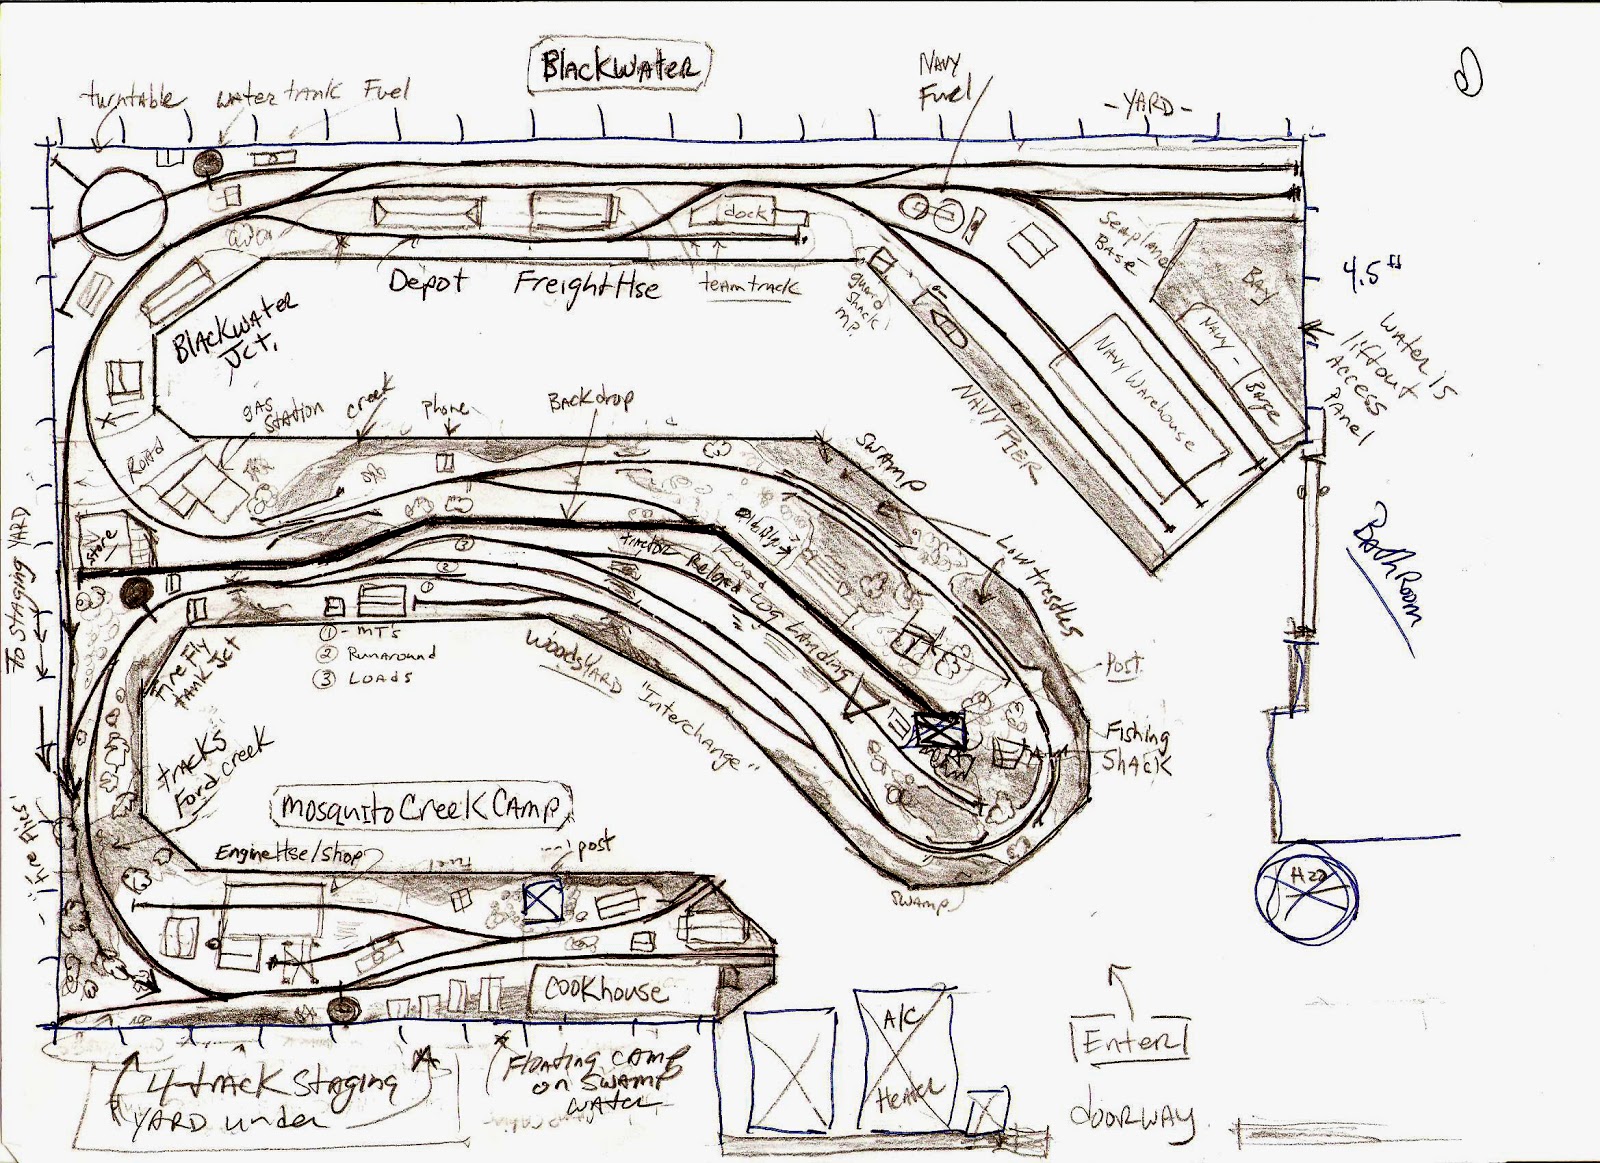 BlackWater
turntable
water tank
Fuel
Navy
Fuel
- YARD -
dock
Depot
Freight Hse
team track
Seaplane
Base
Bay
guard
shack
MP.
Navy -
Barge
Navy Warehouse
NAVY PIER
4.5"
Water is
liftout
Access
Panel
BathRoom
BlackWater
Jct.
Road
gas
station
creek
phone
Backdrop
Swamp
Low trestles
Post
Fishing
Shack
store
TO STAGING YARD
Fire Fly
tank Jct
① - MT's
② Runaround
③ Loads
③
②
①
Woods YARD
"Interchange"
tractor Road
Log Landing
tracks
Ford creek
Mosquito Creek Camp
Engine Hse/Shop
Fuel
post
swamp
Cookhouse
4-track Staging
YARD under
Floating camp
on swamp
water
A/C
Heater
H20
Enter
doorway